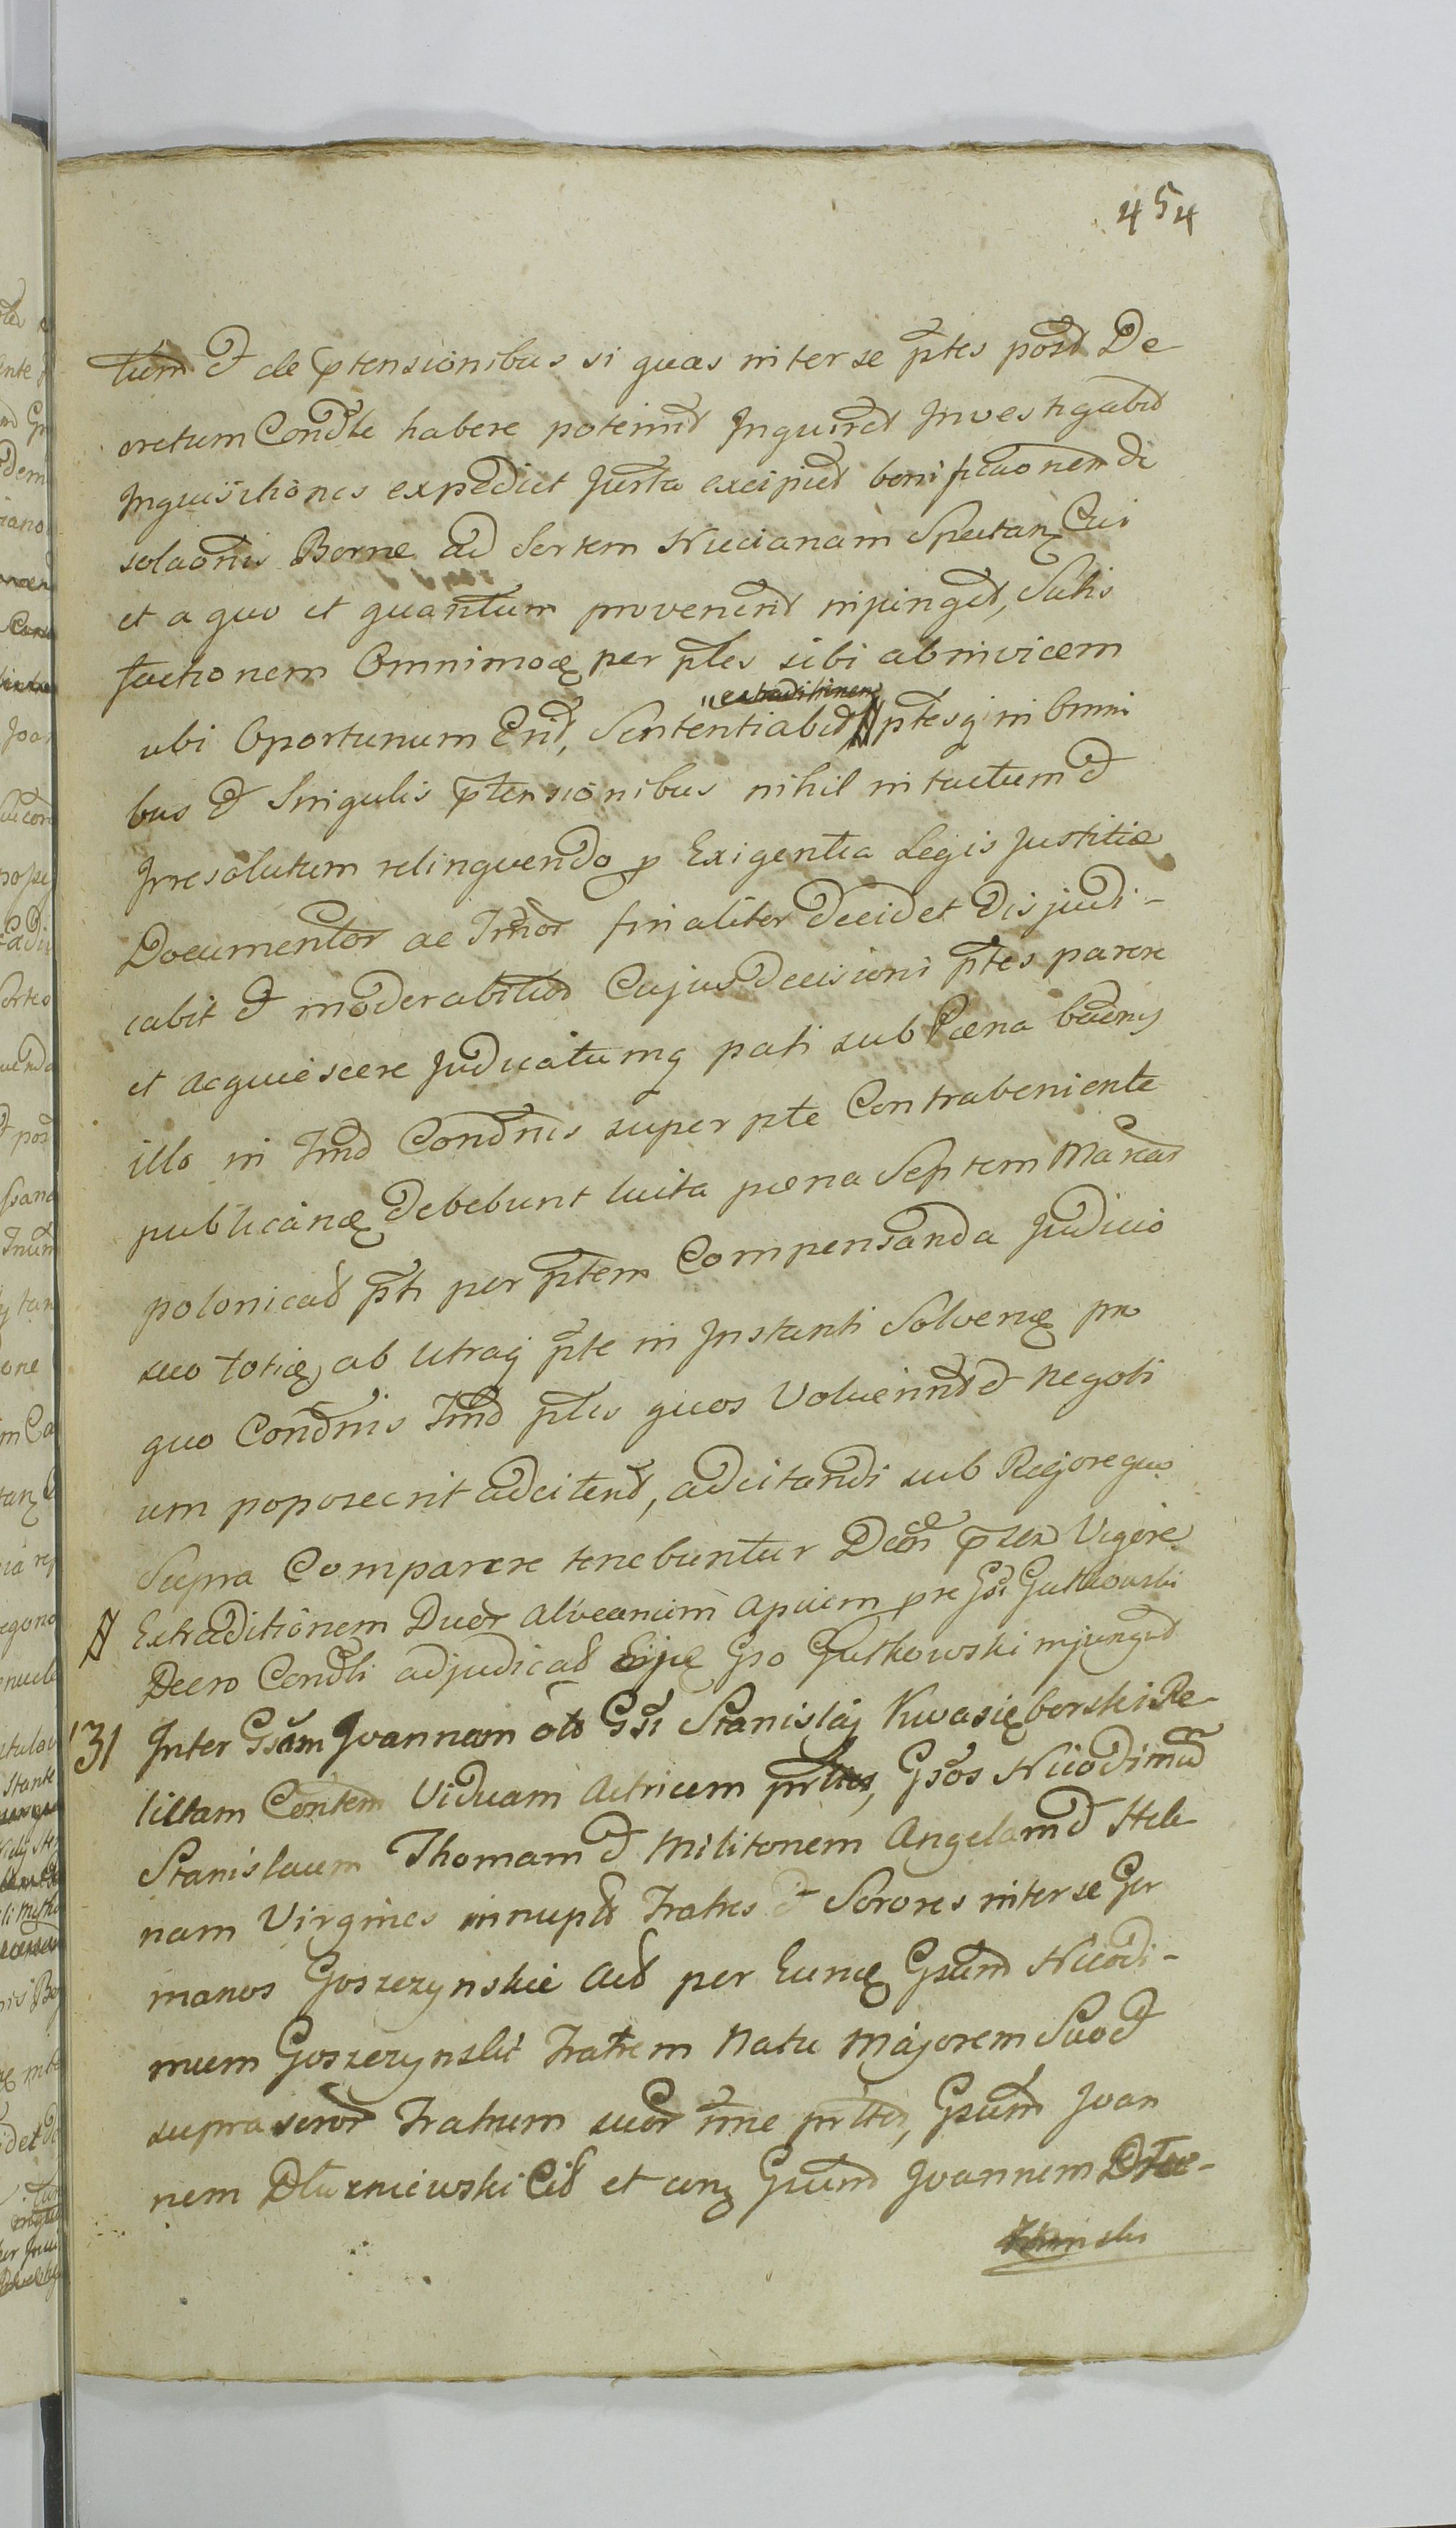 454
tum et de ptensionibus si quas inter se ptes post De
cretum Condle habere poterint Inquiret Investigabit
Inquisitiones expediet Jurta excipiet bonificaonem de
solaonis Borrae ad Sortem Nicianam Spectan Cui
et a quo et quantum provenerit inpinget, Satis
factionem Omnimodae per ptes sibi abinvicem
extraditionem
ubi Oportunum Erit, Sententiabit # ptesq in Omni
bus et Singulis ptensionibus nihil intactum et
Irresolutum relinquendo p Exigentia Legis Justitiae
Documentor ac Jnior finaliter Decidet Disjudi-
cabit et moderabitur Cujus Decisioni ptes parere
et acquiescere Judicatumq pati sub Paena
illo in Jmd Condnis super pte Contraveniente
publicanae Debebunt luita paena Septem Marcar
polonical pti per ptem Compensanda Judicio
suo toties ab utraq pte in Instanti Solvenae pro
quo Condnis Jmd ptes quos Voluerint et Negoti
um poposcerit adcitent, adcitandi sub Rigore quo
Supra Comparere tenebuntur Decri psen Vigore
# Extraditionem Duor alveanium Apium pre Gsi Gutkowski
Decro Condli adjudicat Gso Gutkowski injunget
131 Inter Gsam Joannam olo Gsi Stanislaj Kwasięborski Re-
lictam Contem Viduam Actricem Gsos Nicodimu
Stanislaum Thomam et Militonem Angelam et Hele
nam Virgines innuptas Fratres et Sorores inter se Ger
manos Goszczynskie Acl per Eunde Gsum Nicodi-
mum Goszczynski Fratrem Natu Majorem Suo et
supra soror Fratrum suor nne Gsum Joan
nem Dłuzniewski Cit et conq Gsum Joannem Dłu-